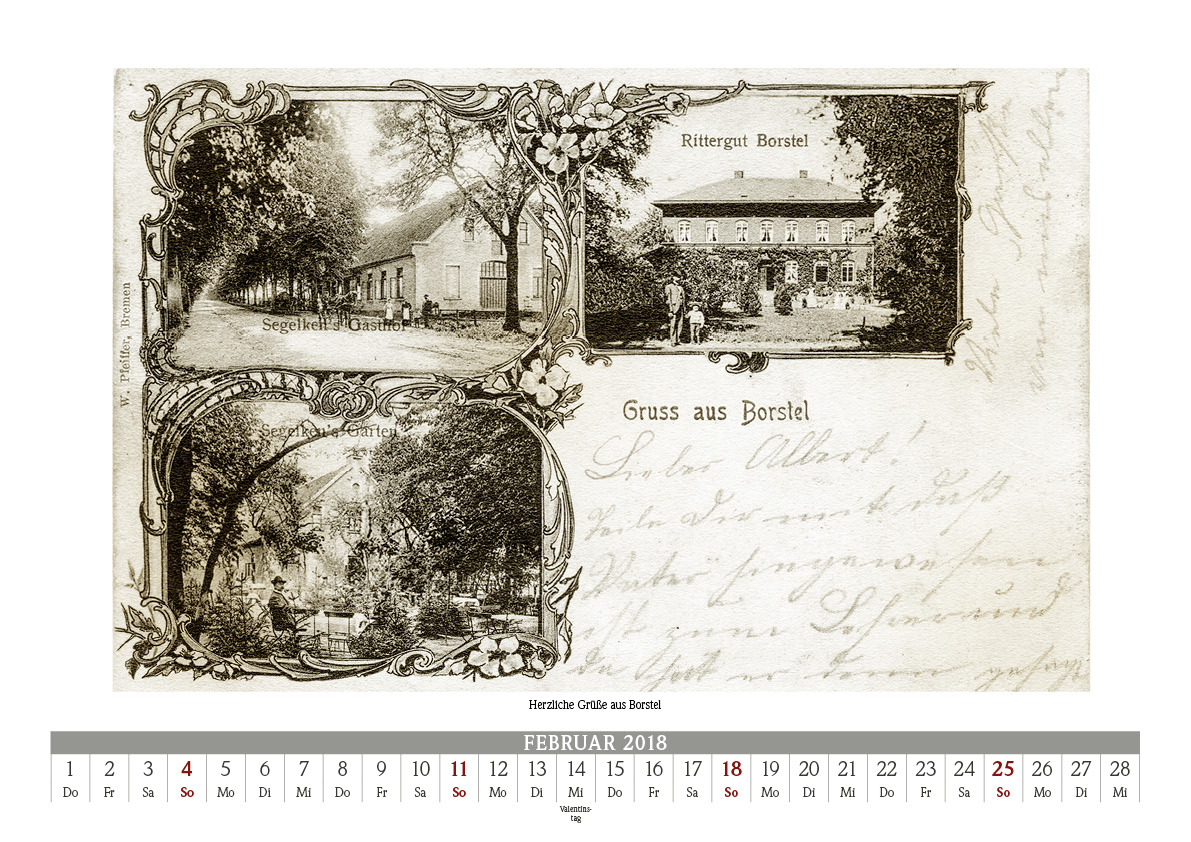 Rittergut Borstel
Segelken's Gasthof
W. Pfeiffer, Bremen
Segelken's Garten
Gruss aus Borstel
Lieber Albert!
Teile Dir mit daß
Vater hingewesen
ist zum Lehrer und
da hat er denn gesagt
Herzliche Grüße aus Borstel
FEBRUAR 2018
1 2 3 4 5 6 7 8 9 10 11 12 13 14 15 16 17 18 19 20 21 22 23 24 25 26 27 28
Do Fr Sa So Mo Di Mi Do Fr Sa So Mo Di Mi Do Fr Sa So Mo Di Mi Do Fr Sa So Mo Di Mi
Valentins-
tag